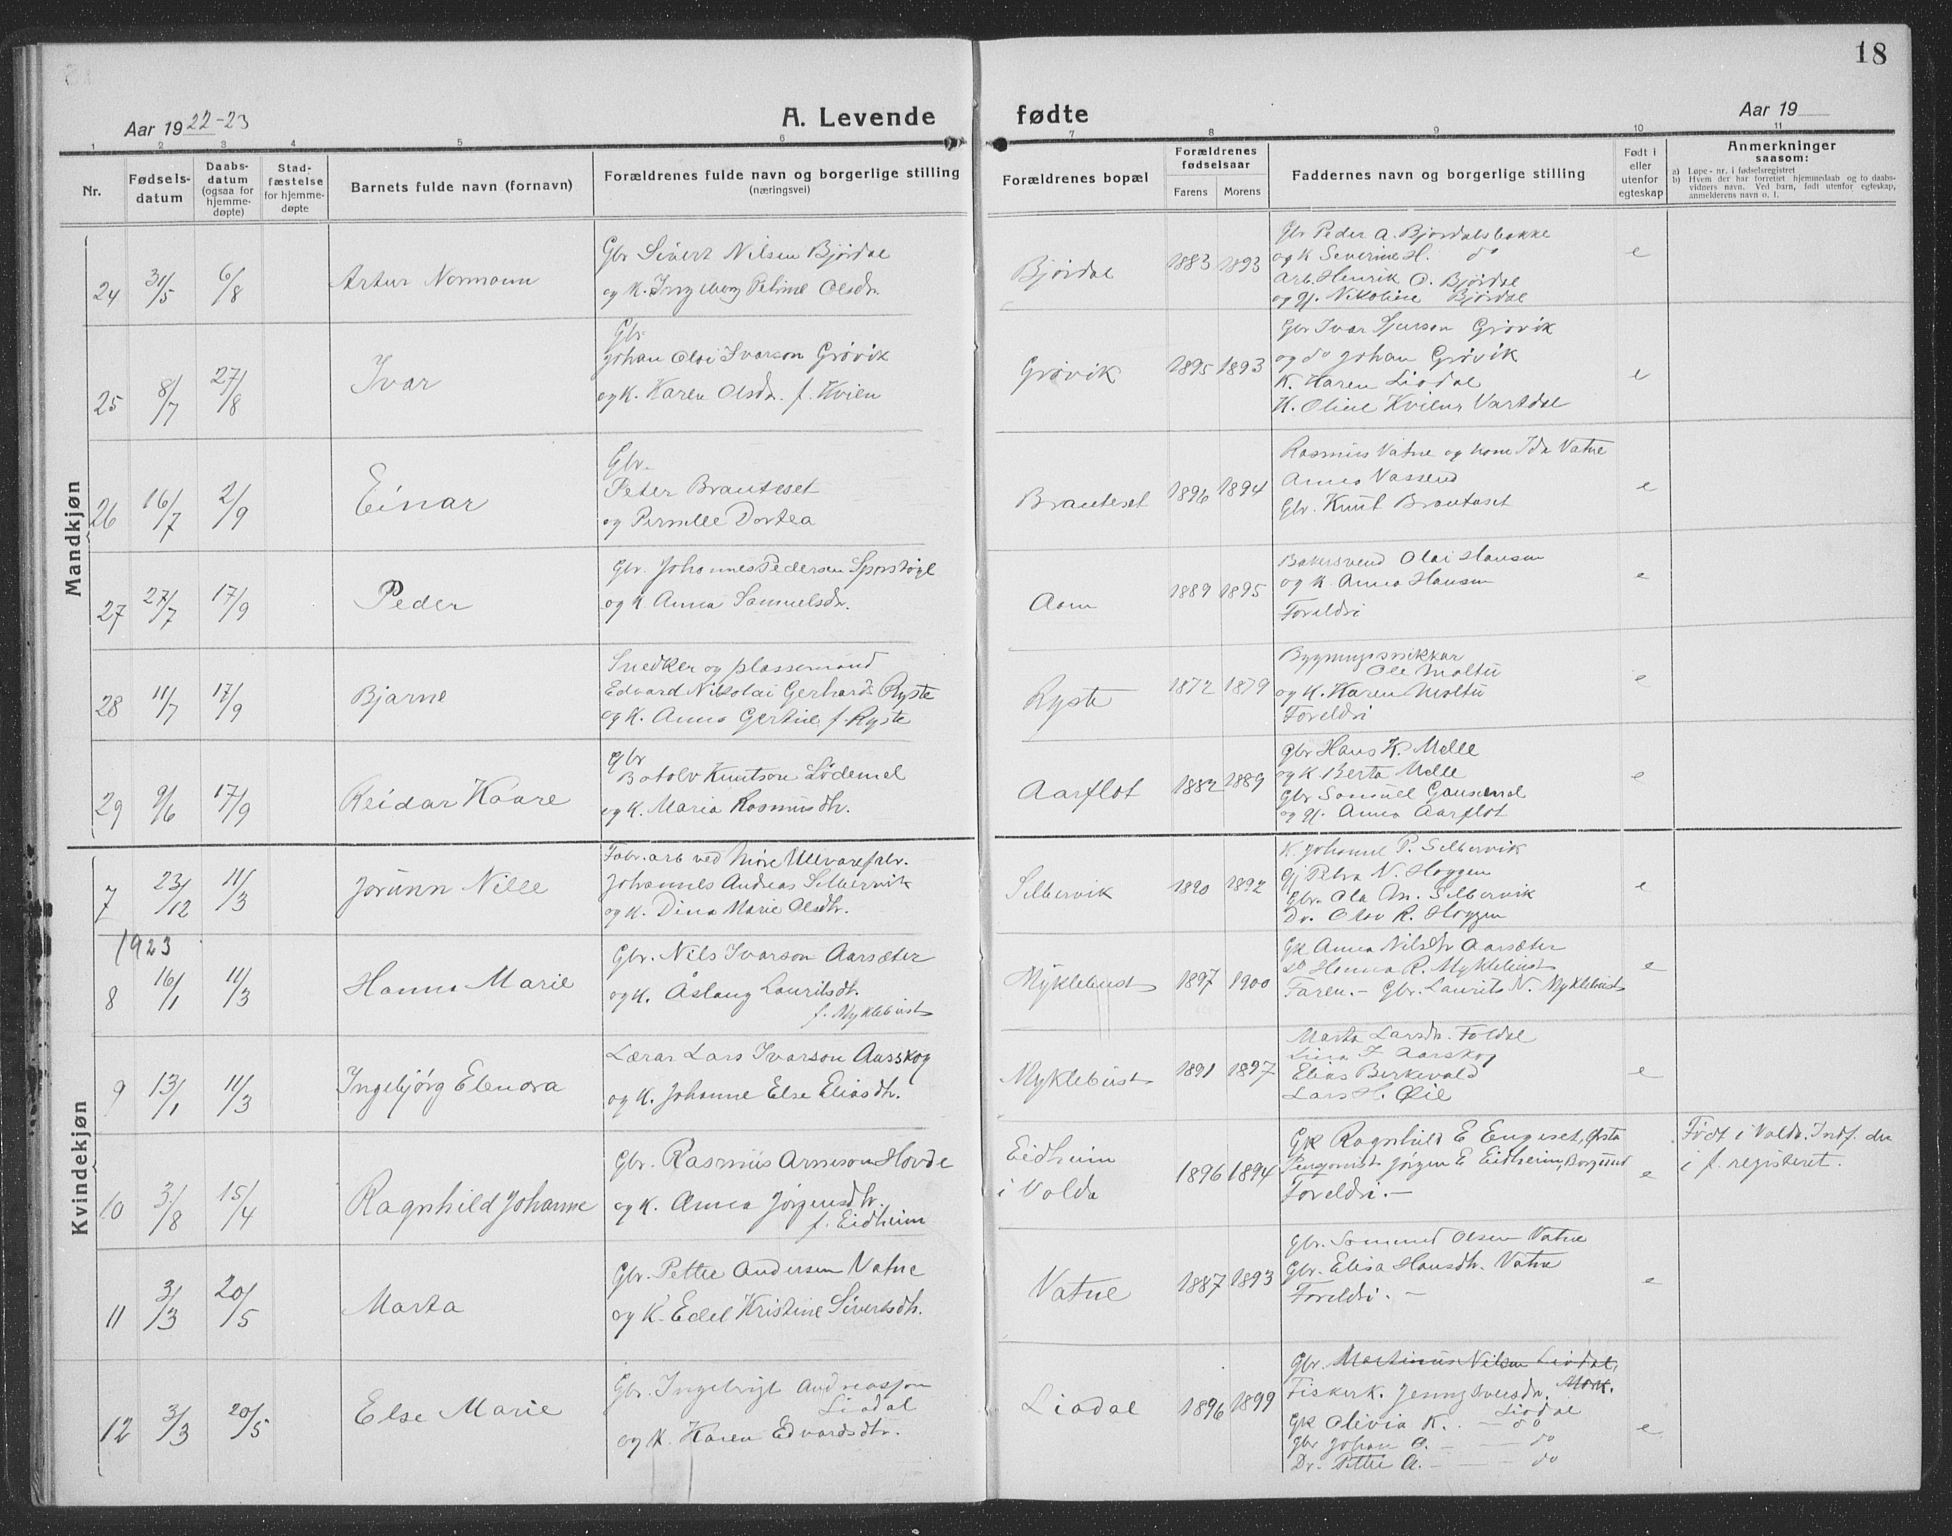 18
Aar 1922-23
A. Levende fødte
Aar 19
1 2 3 4 5 6 7 8 9 10 11
Nr.
Fødselsdatum
Daabsdatum (ogsaa for hjemmedøpte)
Stadfæstelse for hjemmedøpte
Barnets fulde navn (fornavn)
Forældrenes fulde navn og borgerlige stilling (næringsvei)
Forældrenes bopæl
Forældrenes fødselsaar
Farens Morens
Faddernes navn og borgerlige stilling
Født i eller utenfor egteskap
Anmerkninger saasom:
a) Løpe-nr. i fødselsregistret
b) Hvem der har forrettet hjemmedaab og to daabsvidners navn. Ved barn, født utenfor egteskap, anmelderens navn o. l.
Mandkjøn
24 31/5 6/8 Artur Normann
Gbr Sivert Nilsen Bjørdal
og K. Ingeborg Peline Olsdr.
Bjørdal 1883 1893
Gbr Peder A. Bjørdalsbakke
og K Severine H. do
Arb. Henrik O. Bjørdal
og Gj. Nikoline Bjørdal
e
25 8/7 27/8 Ivar
Gbr
Johan Olai Ivarson Grøvik
og K. Karen Olsdr. f. Kvien
Grøvik 1895 1893
Gbr Ivar Sjurson Grøvik
og do Johan Grøvik
K. Karen Liadal
K. Oline Kvien Vartdal
e
26 16/7 2/9 Einar
Gbr.
Peter Brauteset
og Pernille Dortea
Brauteset 1896 1894
Rasmus Vatne og kona Ida Vatne
Anna Vassend
Gbr. Knut Brautaset
e
27 27/7 17/9 Peder
Gbr. Johannes Pedersen Sporstøyl
og K Anna Samuelsdr.
Aam 1889 1895
Bakersvend Olai Hansen
og K. Anna Hansen
Foreldri
e
28 11/7 17/9 Bjarne
Snedker og plassemand
Edvard Nikolai Gerhards Ryste
og K. Anna Gertine f. Ryste
Ryste 1872 1879
Bygningssnikkar
Ole Moltu
og K. Karen Moltu
Foreldri
e
29 9/6 17/9 Reidar Kåare
Gbr
Botolv Knutson Lødemel
og K. Maria Rasmusdtr.
Aarflot 1882 1889
Gbr Hans K. Melle
og K. Berta Melle
Gbr Samuel
og Gj. Anna Aarflot
e
Kvindekjøn
7 23/12 11/3 Jorunn Nille
Fabr. arb ved Møre Ullvarefabr.
Johannes Andreas Selbervik
og K. Dina Marie Olsdtr.
Selbervik 1890 1892
K. Johanne P. Selbervik
Gj Petra N. Hoggen
Gbr. Ola M. Selbervik
Dr. Olav R. Hoggen
e
1923
8 16/1 11/3 Hanna Marie
Gbr. Nils Ivarson Aarsæter
og K. Åslaug Lauritsdtr.
f. Myklebust
Myklebust 1897 1900
Gk Anna Nilsdtr Aarsæter
do Hanna R. Myklebust
Faren. - Gbr. Laurits N. Myklebust
e
9 13/1 11/3 Ingebjørg Elenora
Lærar Lars Ivarson Aarskog
og K. Johanne Else Eliasdtr.
Myklebust 1891 1897
Marta Larsdtr. Foldal
Lina I. Aarskog
Elias Berkevold
Lars H. Øie
e
10 3/8 15/4 Ragnhild Johanne
Gbr. Rasmus Arneson Hovde
og K. Anna Jørgensdtr.
f. Eidheim
Eidheim
i Volda 1896 1894
Gk Ragnhild E Engeset, Ørsta
Pensjonist Jørgen E Eidheim, Borgund
Foreldri. -
e
Født i Volda. Indf. der
i f. registeret.
11 3/3 20/5 Marta
Gbr. Petter Andersen Vatne
og K. Edel Kristine Sivertsdtr.
Vatne 1887 1893
Gbr. Samund Olsen Vatne
Gbr. Elisa Hansdtr. Vatne
Foreldri. -
e
12 3/3 20/5 Else Marie
Gbr. Ingebrigt Andreasson
Liadal
og K. Karen Edvardsdtr.
Liadal 1896 1899
Gbr. Martinus Nilsen Liadal,
Fiskerk. Jenny Iversdtr. Mork.
Liadal
Gk Olivia K. - do
Gbr Johan A. - - do
Dr. Petter A. - - - do
e